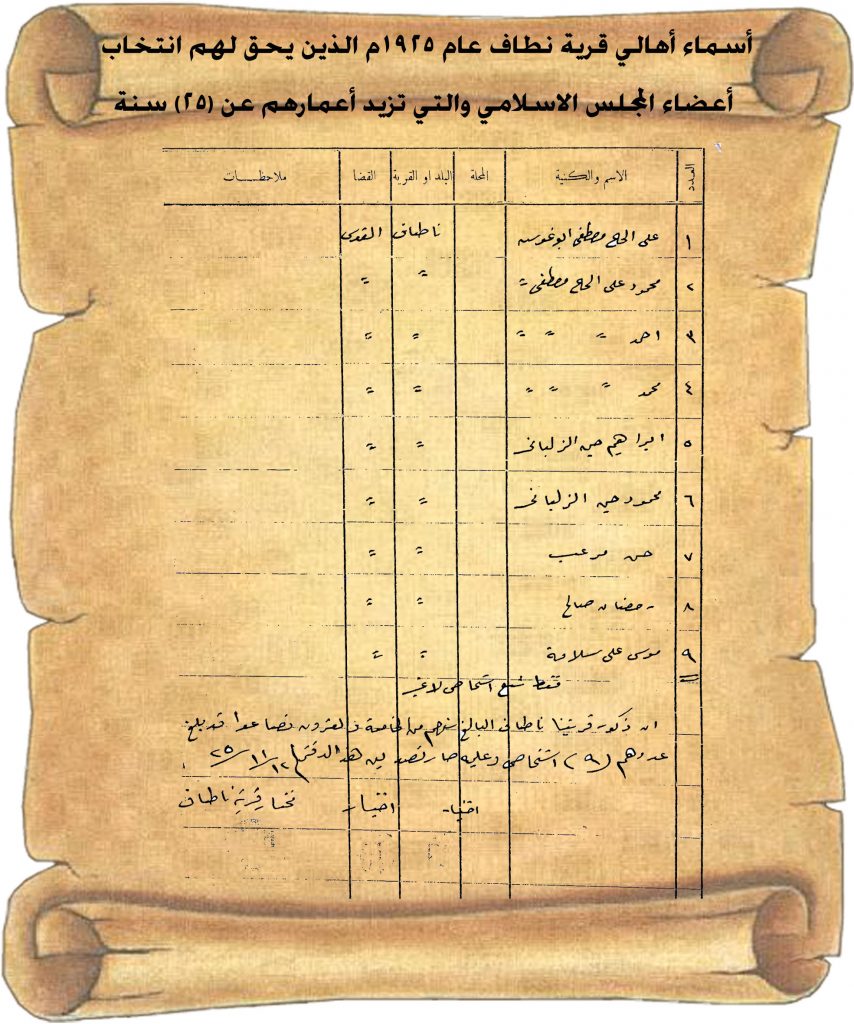 أسماء أهالي قرية نطاف عام ١٩٢٥م الذين يحق لهم انتخاب
أعضاء المجلس الاسلامي والتي تزيد أعمارهم عن (٢٥) سنة
العـدد الاسم والكنية المحلة البلد او القرية القضا ملاحظـــات
١ علي الحاج مصطفى ابو غوش ناطاف القدس
٢ محمود علي الحاج مصطفى " " "
٣ احمد " " " " "
٤ محمد " " " " "
٥ ابراهيم حسين الزلباني " "
٦ محمود حسين الزلباني " "
٧ حسن مرعب " "
٨ رمضان صالح " "
٩ موسى علي سلامة " "
فقط تسع اشخاص لا غير
ان ذكور قريتنا ناطاف البالغ سنهم من الخامسة والعشرون فصاعدا قد بلغ
عددهم (٩) اشخاص وعليه صار تصديق هذا الدفتر ٢٥/١١/١٢
اختيار اختيار مختار قرية ناطاف